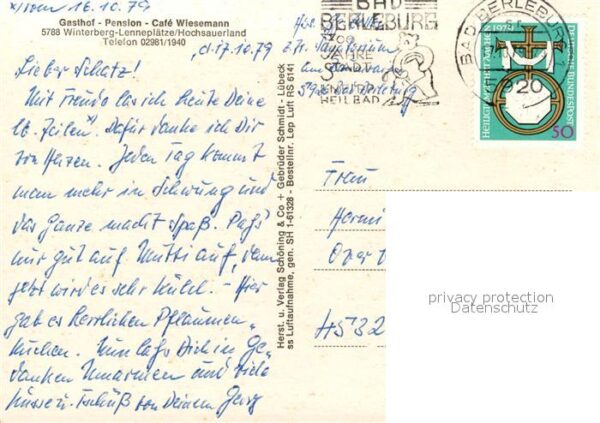 x) vom 16.10.79
Gasthof - Pension - Café Wiesemann
5788 Winterberg-Lenneplätze/Hochsauerland
Telefon 02981/1940
d. 17.10.79
Lieber Schatz!
Mit Freude las ich heute Deine
lb. Zeilen x). Dafür danke ich Dir
von Herzen. Jeden Tag kommt
man mehr in Schwung und
das Ganze macht Spaß. Paß
nur gut auf Mutti auf, denn
jetzt wird es sehr kühl. - Hier
gab es herrlichen Pflaumen-
kuchen. Nun laß Dich in Ge-
danken umarmen und viele
Küsse u. Tschüß von Deinem
Herst. u. Verlag Schöning & Co + Gebrüder Schmidt - Lübeck
ss Luftaufnahme, gen. SH 1-61328 - Bestellnr. Lep Luft RS 6141
z. Zt. Sanatorium
BAD
BERLEBURG
700
JAHRE
STADT
KNEIPP
HEILBAD
BAD BERLEBURG
1920
HEILIGTUMSFAHRT AACHEN 1979
DEUTSCHE BUNDESPOST
50
Frau
Hermi
Ober
4532
privacy protection
Datenschutz